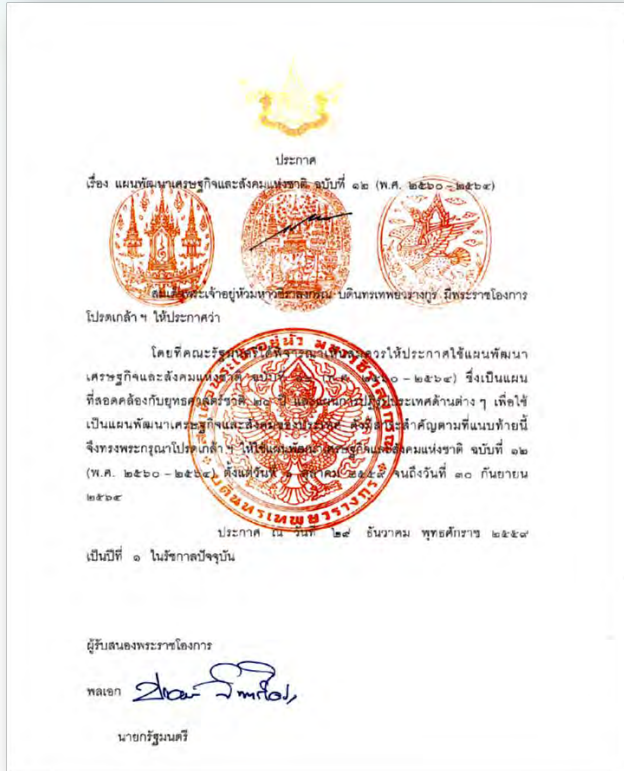 ประกาศ
เรื่อง แผนพัฒนาเศรษฐกิจและสังคมแห่งชาติ ฉบับที่ ๑๒ (พ.ศ. ๒๕๖๐ - ๒๕๖๔)
สมเด็จพระเจ้าอยู่หัวมหาวชิราลงกรณ บดินทรเทพยวรางกูร มีพระราชโองการ
โปรดเกล้า ฯ ให้ประกาศว่า
โดยที่คณะรัฐมนตรีได้พิจารณาเห็นสมควรให้ประกาศใช้แผนพัฒนา
เศรษฐกิจและสังคมแห่งชาติ ฉบับที่ ๑๒ (พ.ศ. ๒๕๖๐ - ๒๕๖๔) ซึ่งเป็นแผน
ที่สอดคล้องกับยุทธศาสตร์ชาติ ๒๐ ปี และแผนการปฏิรูปประเทศด้านต่าง ๆ เพื่อใช้
เป็นแผนพัฒนาเศรษฐกิจและสังคมของประเทศ ดังมีสาระสำคัญตามที่แนบท้ายนี้
จึงทรงพระกรุณาโปรดเกล้า ฯ ให้ใช้แผนพัฒนาเศรษฐกิจและสังคมแห่งชาติ ฉบับที่ ๑๒
(พ.ศ. ๒๕๖๐ - ๒๕๖๔) ตั้งแต่วันที่ ๑ ตุลาคม ๒๕๕๙ จนถึงวันที่ ๓๐ กันยายน
๒๕๖๔
ประกาศ ณ วันที่ ๒๙ ธันวาคม พุทธศักราช ๒๕๕๙
เป็นปีที่ ๑ ในรัชกาลปัจจุบัน
สมเด็จพระเจ้าอยู่หัว มหาวชิราลงกรณ
บดินทรเทพยวรางกูร
ผู้รับสนองพระราชโองการ
พลเอก
นายกรัฐมนตรี